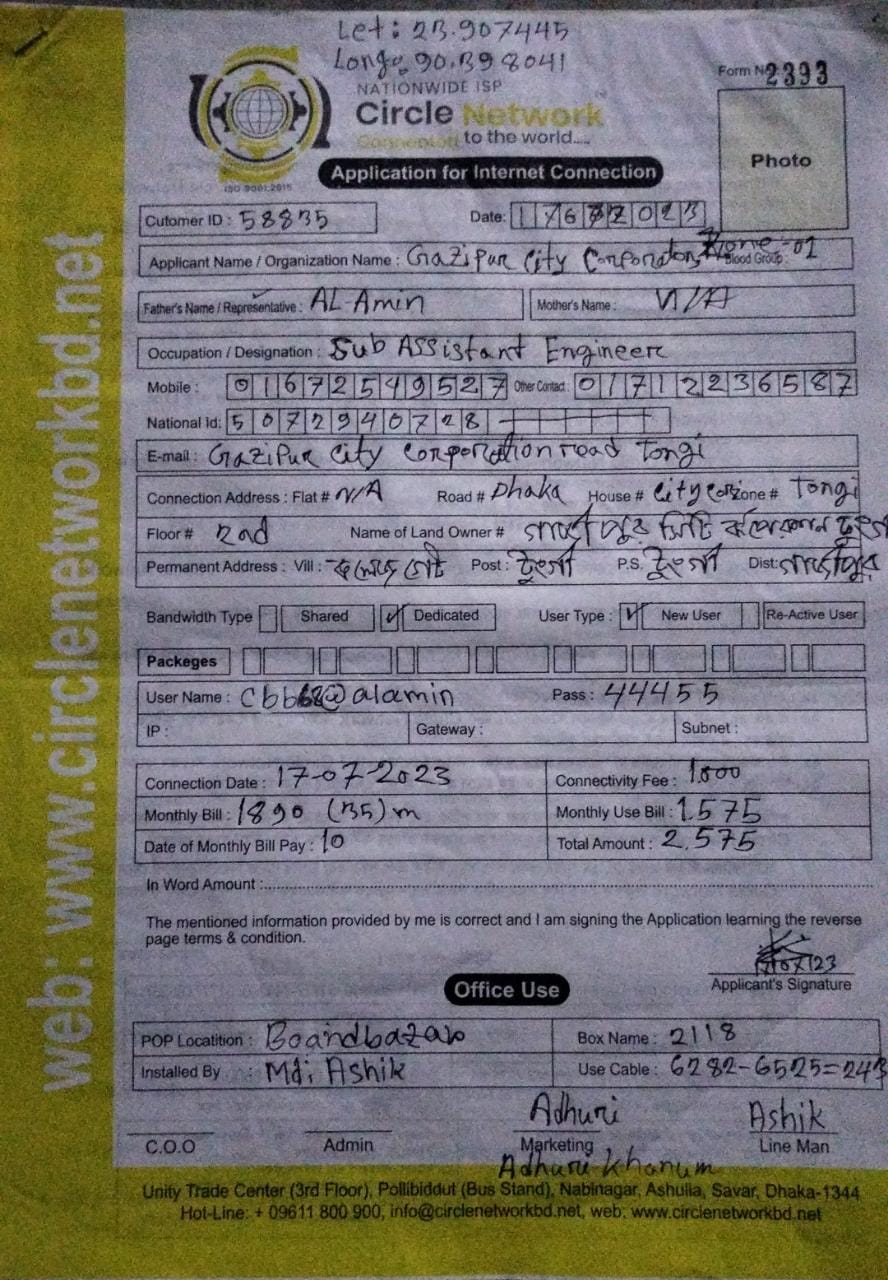 Let: 23.907445
Long: 90.398041
NATIONWIDE ISP
Form No 2393
Circle Network
to the world.....
Photo
Application for Internet Connection
ISO 9001:2015
Cutomer ID : 58835
Date: 17072023
Applicant Name / Organization Name : Gazipur City Corporation Zone-01 Blood Group :
Father's Name / Representative : AL-Amin Mother's Name : N/A
Occupation / Designation : Sub Assistant Engineer
Mobile : 01672549527 Other Contact : 01712236587
National Id: 5072940728
E-mail : Gazipur City Corporation road Tongi
Connection Address : Flat # N/A Road # Dhaka House # City cor Zone # Tongi
Floor # 2nd Name of Land Owner # গাজীপুর সিটি কর্পোরেশন টঙ্গী
Permanent Address : Vill : কলেজ গেট Post : টঙ্গী P.S. টঙ্গী Dist: গাজীপুর
Bandwidth Type Shared ✓ Dedicated User Type : ✓ New User Re-Active User
Packeges
User Name : cbb68@alamin Pass : 44455
IP : Gateway : Subnet :
Connection Date : 17-07-2023 Connectivity Fee : 1000
Monthly Bill : 1890 (35)m Monthly Use Bill : 1575
Date of Monthly Bill Pay : 10 Total Amount : 2,575
In Word Amount :
The mentioned information provided by me is correct and I am signing the Application learning the reverse
page terms & condition.
17/07/23
Applicant's Signature
Office Use
POP Locatition : Boardbazar Box Name : 2118
Installed By : Md: Ashik Use Cable : 6282-6525=243
Adhuri Ashik
C.O.O Admin Marketing Line Man
Adhuri Khanum
Unity Trade Center (3rd Floor), Pollibiddut (Bus Stand), Nabinagar, Ashulia, Savar, Dhaka-1344
Hot-Line: + 09611 800 900, info@circlenetworkbd.net, web: www.circlenetworkbd.net
web: www.circlenetworkbd.net